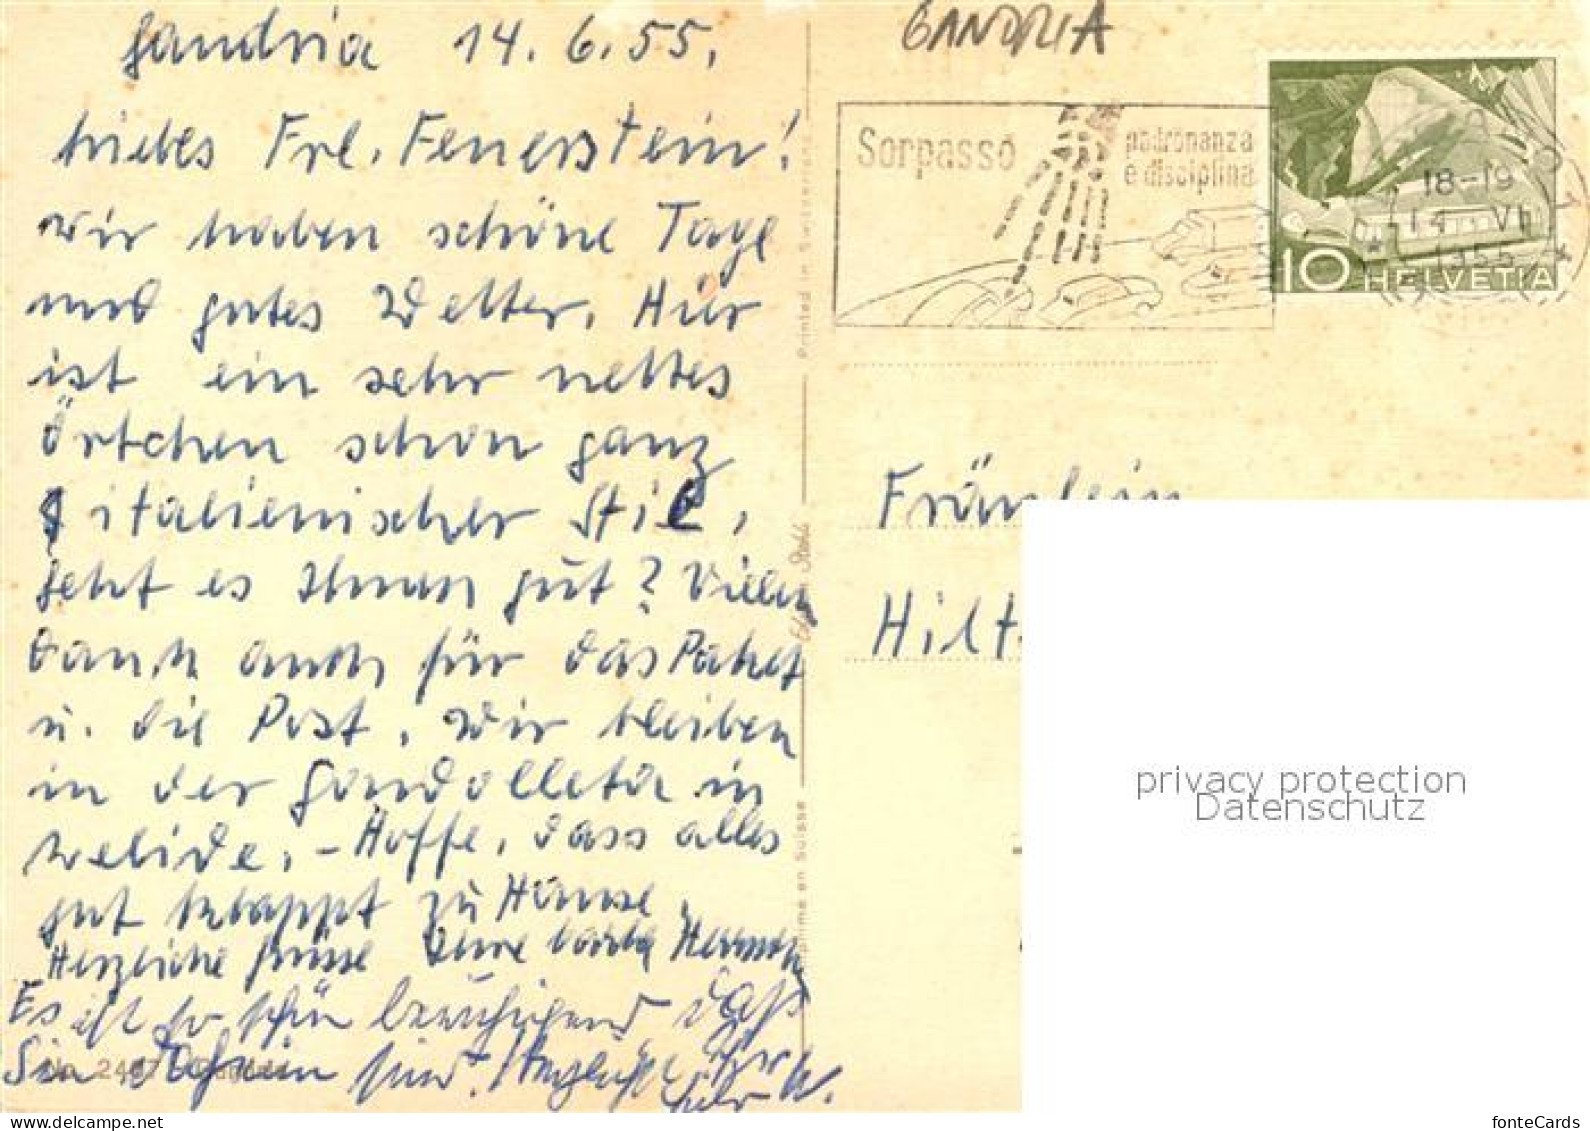 Gandria 14.6.55.
Liebes Frl. Feuerstein!
wir haben schöne Tage
und gutes Wetter. Hier
ist ein sehr nettes
Örtchen schon ganz
italienischer Stil,
geht es Ihnen gut? Vielen
Dank auch für das Paket
u. die Post, wir bleiben
in der
- Hoffe, dass alles
gut klappt zu Hause,
Herzliche Grüsse
Es ist so schön beruhigend daß
Sie daheim sind.
No. 2447
Printed in Switzerland
en Suisse
GANDRIA
Sorpasso
padronanza
e disciplina
18-19
14 VI
1955
10 HELVETIA
Fräulein
Hilt
privacy protection
Datenschutz
fonteCards